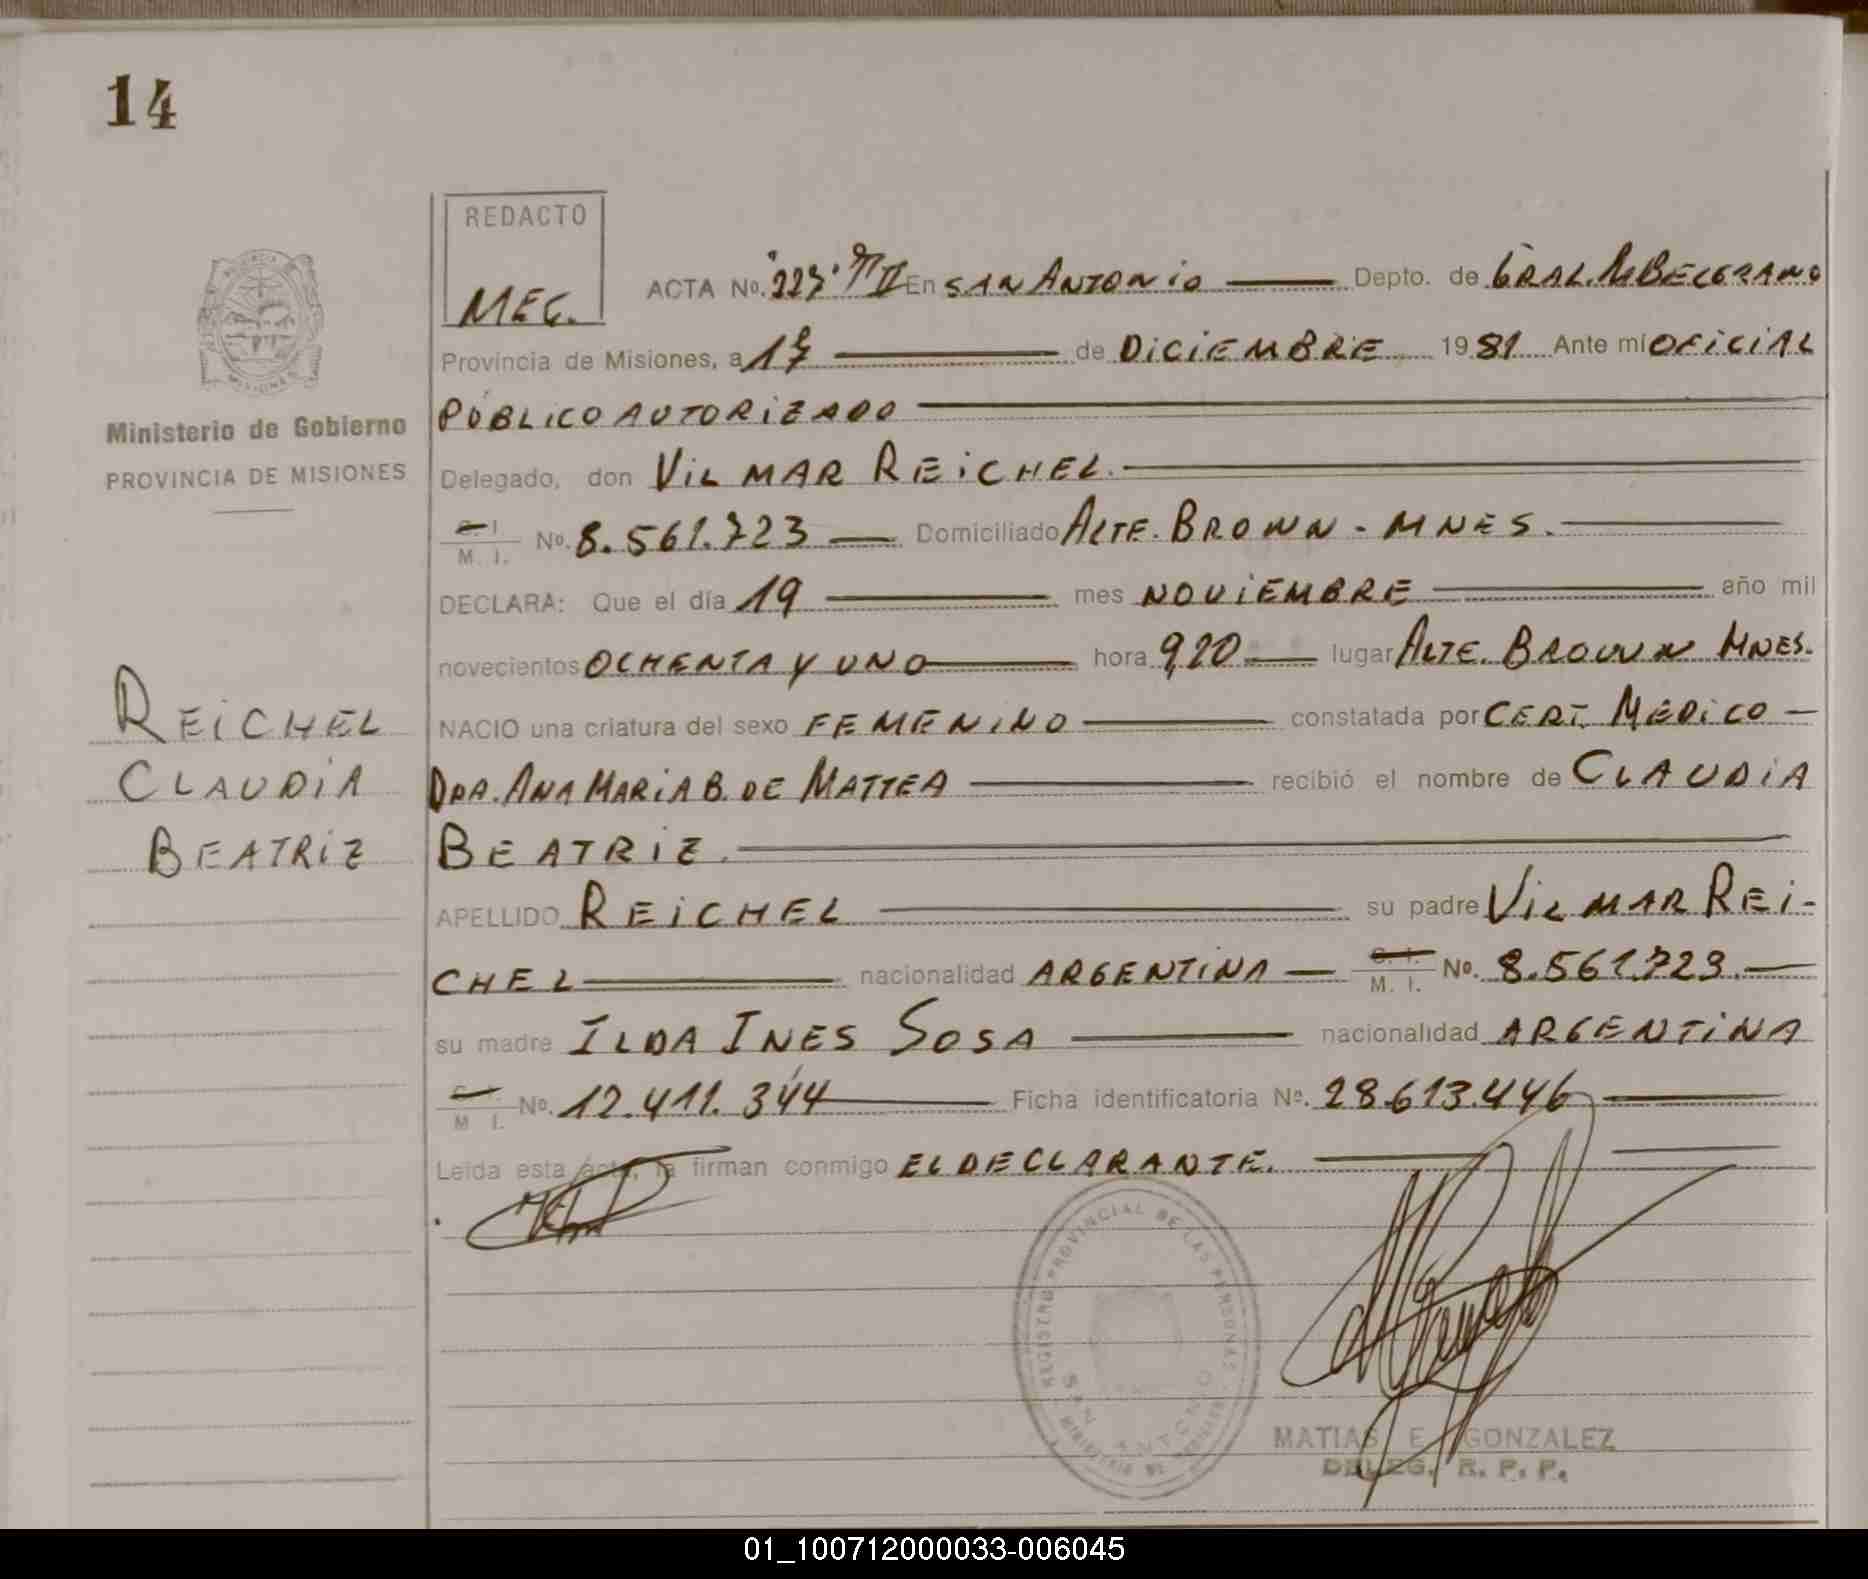 14
REDACTO
MEG.
ACTA No. 223 T II En SAN ANTONIO Depto. de GRAL. M. BELGRANO
Provincia de Misiones, a 17 de DICIEMBRE 1981 Ante mí OFICIAL
PÚBLICO AUTORIZADO
Delegado, don VILMAR REICHEL.
C. I.
M. I. No. 8.561.723 Domiciliado ALTE. BROWN - MNES.
DECLARA: Que el día 19 mes NOVIEMBRE año mil
novecientos OCHENTA Y UNO hora 9,20 lugar ALTE. BROWN MNES.
NACIO una criatura del sexo FEMENINO constatada por CERT. MEDICO
DRA. ANA MARIA B. DE MATTEA recibió el nombre de CLAUDIA
BEATRIZ.
APELLIDO REICHEL su padre VILMAR REI-
CHEL nacionalidad ARGENTINA C. I.
M. I. No. 8.561.723.
su madre ILDA INES SOSA nacionalidad ARGENTINA
C. I.
M. I. No. 12.411.344 Ficha identificatoria Nº. 28.613.446
Leida esta acta, la firman conmigo EL DECLARANTE.
PROVINCIA
MISIONES
Ministerio de Gobierno
PROVINCIA DE MISIONES
REICHEL
CLAUDIA
BEATRIZ
REGISTRO PROVINCIAL DE LAS PERSONAS
SAN ANTONIO
MINISTERIO DE GOBIERNO
MATIAS E. GONZALEZ
DELEG. R. P. P.
01_100712000033-006045